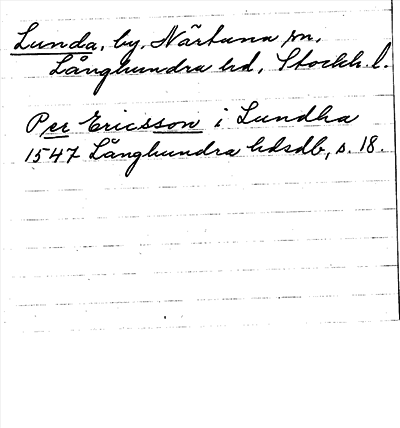 Lunda, by, Närtuna sn,
Långhundra hd, Stockh. l.
Per Ericsson i Lundha
1547 Långhundra hdsdb, s. 18.